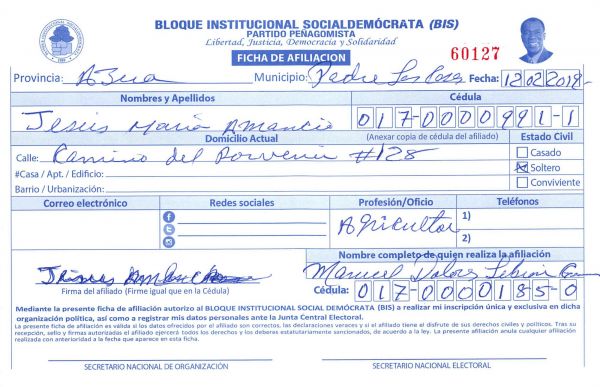 BLOQUE INSTITUCIONAL SOCIALDEMÓCRATA (BIS)
PARTIDO PEÑAGOMISTA
Libertad, Justicia, Democracia y Solidaridad
FICHA DE AFILIACION
60127
Provincia: Azua Municipio: Padre Las Casas Fecha: 12/02/2019-
Nombres y Apellidos Cédula
Jesús María Amancio 017-0000991-1
Domicilio Actual (Anexar copia de cédula del afiliado) Estado Civil
Calle: Camino del Porvenir #128 Casado
#Casa / Apt. / Edificio: Soltero
Barrio / Urbanización: Conviviente
Correo electrónico Redes sociales Profesión/Oficio Teléfonos
Agricultor 1)
2)
Nombre completo de quien realiza la afiliación
Jesús Manuel
Firma del afiliado (Firme igual que en la Cédula) Cédula: 017-0000185-0
Mediante la presente ficha de afiliación autorizo al BLOQUE INSTITUCIONAL SOCIAL DEMÓCRATA (BIS) a realizar mi inscripción única y exclusiva en dicha
organización política, así como a registrar mis datos personales ante la Junta Central Electoral.
La presente ficha de afiliación es válida si los datos ofrecidos por el afiliado son correctos, las declaraciones veraces y si el afiliado tiene el disfrute de sus derechos civiles y políticos. Tras su
recepción, sello y firma autorizadas el afiliado ejercerá todos los derechos y los deberes estatutariamente sancionados, de acuerdo a la ley. La presente afiliación anula cualquier afiliación
realizada con anterioridad a la fecha que aparece en esta ficha.
SECRETARIO NACIONAL DE ORGANIZACIÓN SECRETARIO NACIONAL ELECTORAL